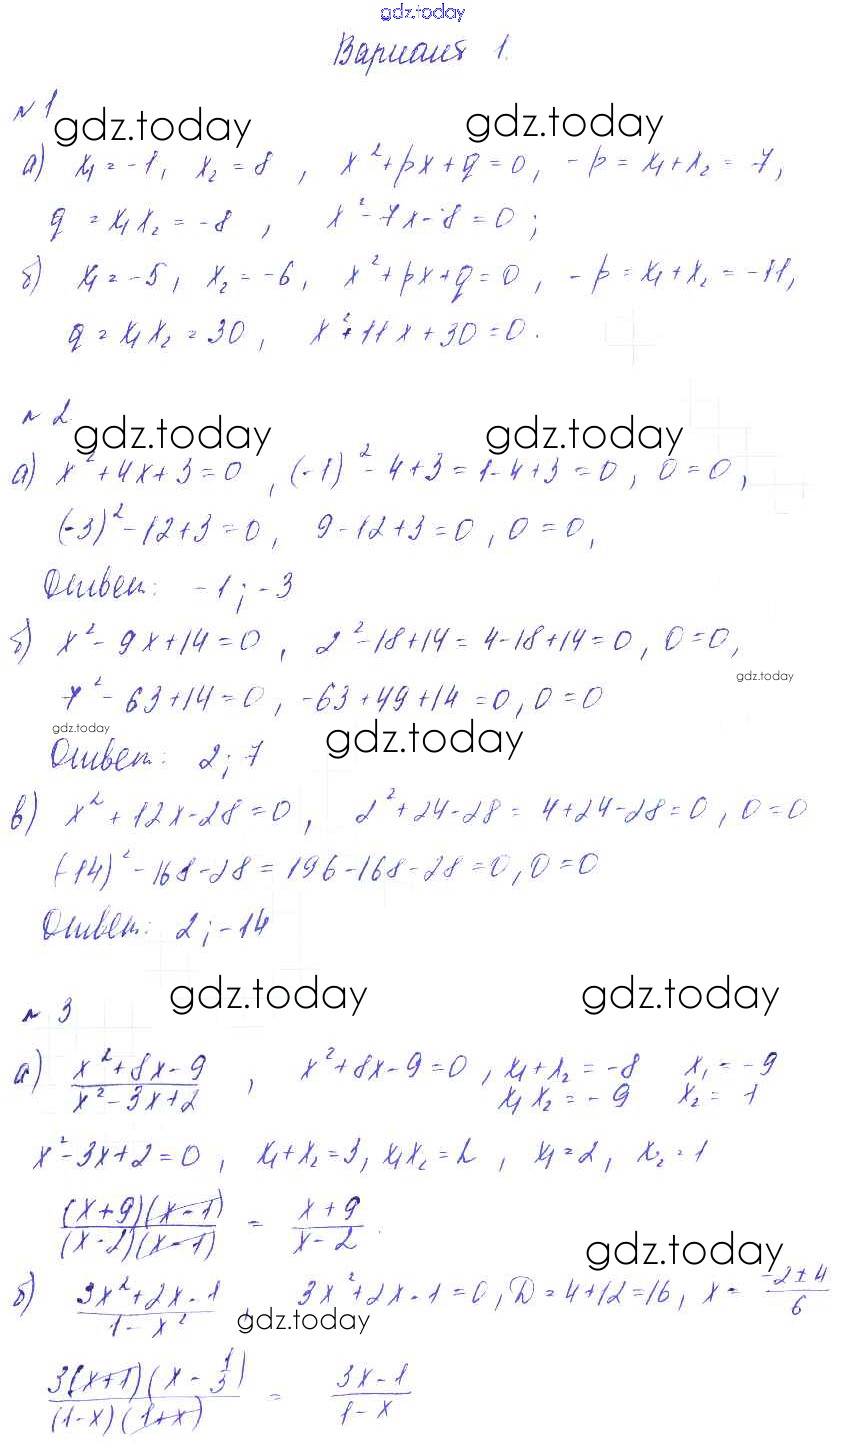 gdz.today
Вариант 1.
№ 1
gdz.today gdz.today
а) x₁ = -1, x₂ = 8, x² + px + q = 0, -p = x₁ + x₂ = -7,
q = x₁x₂ = -8, x² - 7x - 8 = 0;
б) x₁ = -5, x₂ = -6, x² + px + q = 0, -p = x₁ + x₂ = -11,
q = x₁x₂ = 30, x² + 11x + 30 = 0.
№ 2
gdz.today gdz.today
а) x² + 4x + 3 = 0, (-1)² - 4 + 3 = 1 - 4 + 3 = 0, 0 = 0,
(-3)² - 12 + 3 = 0, 9 - 12 + 3 = 0, 0 = 0,
Ответ: -1; -3
б) x² - 9x + 14 = 0, 2² - 18 + 14 = 4 - 18 + 14 = 0, 0 = 0,
gdz.today
7² - 63 + 14 = 0, -63 + 49 + 14 = 0, 0 = 0
gdz.today gdz.today
Ответ: 2; 7
в) x² + 12x - 28 = 0, 2² + 24 - 28 = 4 + 24 - 28 = 0, 0 = 0
(-14)² - 168 - 28 = 196 - 168 - 28 = 0, 0 = 0
Ответ: 2; -14
gdz.today gdz.today
№ 3
а) (x² + 8x - 9)/(x² - 3x + 2), x² + 8x - 9 = 0, x₁ + x₂ = -8 x₁ = -9
x₁x₂ = -9 x₂ = 1
x² - 3x + 2 = 0, x₁ + x₂ = 3, x₁x₂ = 2, x₁ = 2, x₂ = 1
((x + 9)(x - 1))/((x - 2)(x - 1)) = (x + 9)/(x - 2).
gdz.today
б) (3x² + 2x - 1)/(1 - x²), 3x² + 2x - 1 = 0, D = 4 + 12 = 16, x = (-2 ± 4)/6
gdz.today
(3(x + 1)(x - 1/3))/((1 - x)(1 + x)) = (3x - 1)/(1 - x)